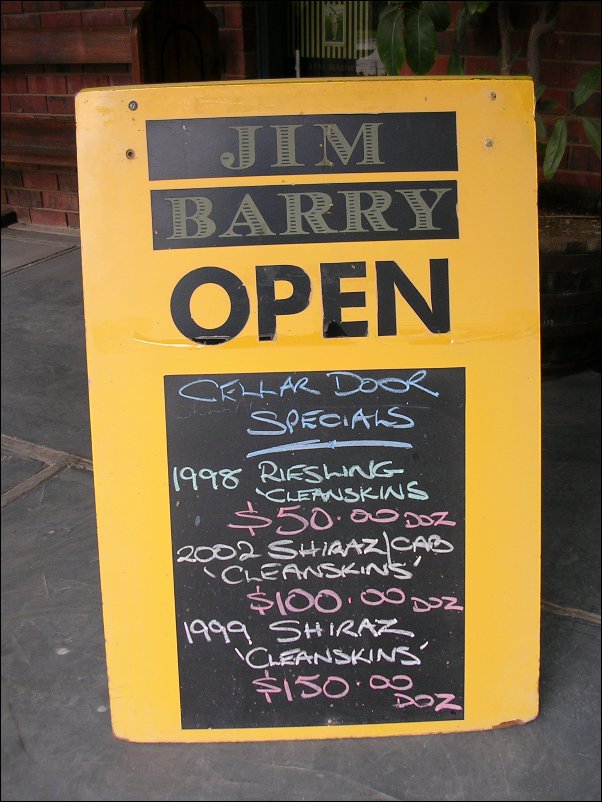 JIM
BARRY
OPEN
CELLAR DOOR
SPECIALS
1998 RIESLING
'CLEANSKINS
$50.00 DOZ
2002 SHIRAZ/CAB
'CLEANSKINS'
$100.00 DOZ
1999 SHIRAZ
'CLEANSKINS'
$150.00
DOZ